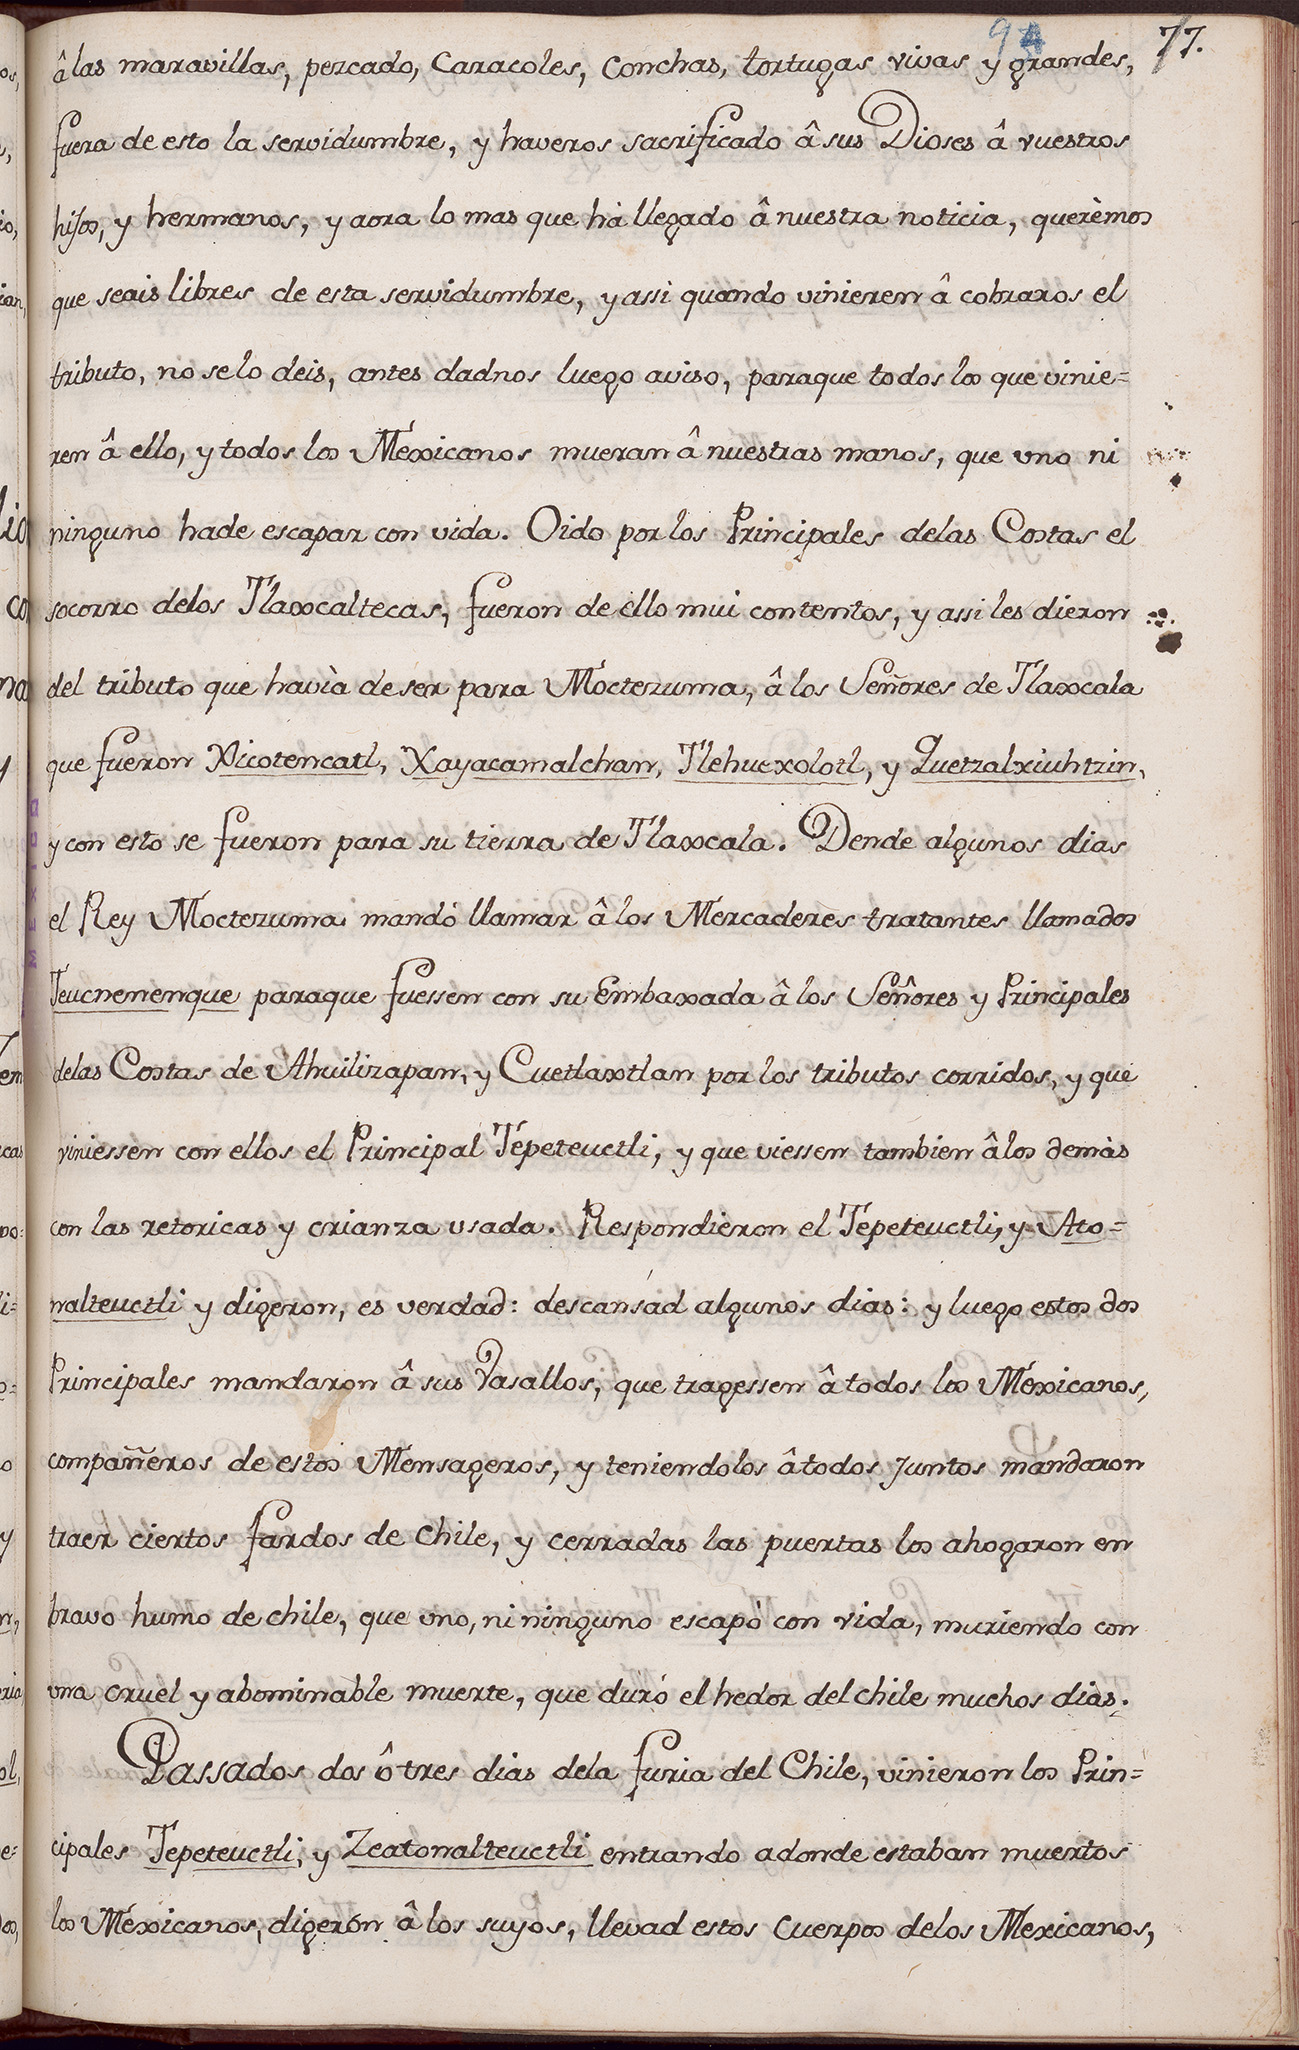 94 77.
â las maravillas, pezcado, Caracoles, Conchas, tortugas vivas y grandes,
fuera de esto la servidumbre, y haveros sacrificado â sus Dioses â vuestros
hijos, y hermanos, y aora lo mas que hà llegado â nuestra noticia, querèmos
que seais libres de esta servidumbre, y assi quando vinieren â cobraros el
tributo, no se lo deis, antes dadnos luego aviso, paraque todos los que vinie=
ren â ello, y todos los Mexicanos mueran â nuestras manos, que vno ni
ninguno hade escapar con vida. Oido por los Principales delas Costas el
socorro delos Tlaxcaltecas, fueron de ello mui contentos, y assi les dieron
del tributo que havìa de ser para Moctezuma, â los Señores de Tlaxcala
que fueron Xicotencatl, Xayacamalchan, Tlehuexolotl, y Quetzalxiuhtzin,
y con esto se fueron para su tierra de Tlaxcala. Dende algunos dias
el Rey Moctezuma mandó llamar â los Mercaderes tratantes llamados
Teucnenenque paraque fuessen con su Embaxada â los Señores y Principales
delas Costas de Ahuilizapan, y Cuetlaxtlan por los tributos corridos, y que
viniessen con ellos el Principal Tepeteuctli, y que viessen tambien â los demàs
con las retoricas y crianza usada. Respondieron el Tepeteuctli, y Ato=
nalteuctli y digeron, es verdad: descansad algunos dias: y luego estos dos
Principales mandaron â sus Vasallos, que tragessen â todos los Mexicanos,
compañeros de estos Mensageros, y teniendolos â todos juntos mandaron
traer ciertos fardos de chile, y cerradas las puertas los ahogaron en
bravo humo de chile, que vno, ni ninguno escapò con vida, muriendo con
vna cruel y abominable muerte, que duró el hedor del chile muchos dias.
Passados dos ô tres dias dela furia del Chile, vinieron los Prin=
cipales Tepeteuctli, y Zeatonalteuctli entrando adonde estaban muertos
los Mexicanos, digerón â los suyos, llevad estos cuerpos delos Mexicanos,